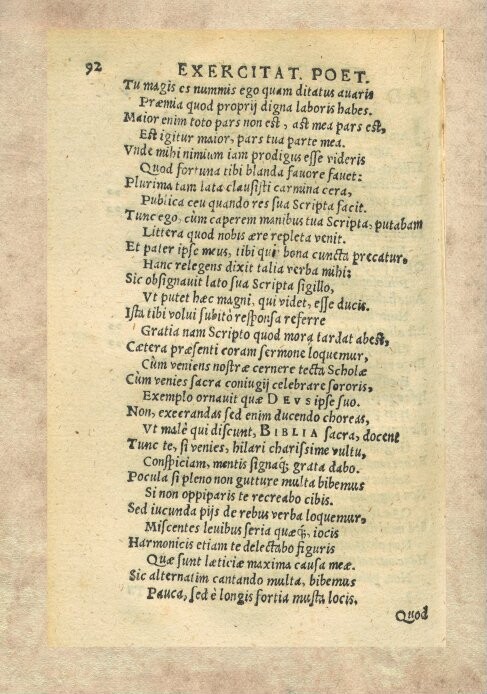 92 EXERCITAT. POET.
Tu magis es nummis ego quam ditatus avaris
Præmia quod proprij digna laboris habes.
Maior enim toto pars non est, ast mea pars est,
Est igitur maior, pars tua parte mea.
Vnde mihi nimium iam prodigus esse videris
Quod fortuna tibi blanda favore favet:
Plurima tam lata clausisti carmina cera,
Publica ceu quando res sua Scripta facit.
Tunc ego, cùm caperem manibus tua Scripta, putabam
Littera quod nobis ære repleta venit.
Et pater ipse meus, tibi qui bona cuncta precatur,
Hanc relegens dixit talia verba mihi:
Sic obsignauit lato sua Scripta sigillo,
Vt putet hæc magni, qui videt, esse ducis.
Ista tibi volui subitò responsa referre
Gratia nam Scripto quod mora tardat abest,
Cætera præsenti coram sermone loquemur,
Cùm veniens nostræ cernere tecta Scholæ
Cùm venies sacra coniugij celebrare sororis,
Exemplo ornauit quæ DEVS ipse suo.
Non, execrandas sed enim ducendo choreas,
Vt malè qui discunt, BIBLIA sacra, docent
Tunc te, si venies, hilari charissime vultu,
Conspiciam, mentis signaq́; grata dabo.
Pocula si pleno non gutture multa bibemus
Si non oppiparis te recreabo cibis.
Sed iucunda pijs de rebus verba loquemur,
Miscentes leuibus seria quæq́;, iocis
Harmonicis etiam te delectabo figuris
Quæ sunt lætitiæ maxima causa meæ.
Sic alternatim cantando multa, bibemus
Pauca, sed è longis fortia musta locis.
Quod